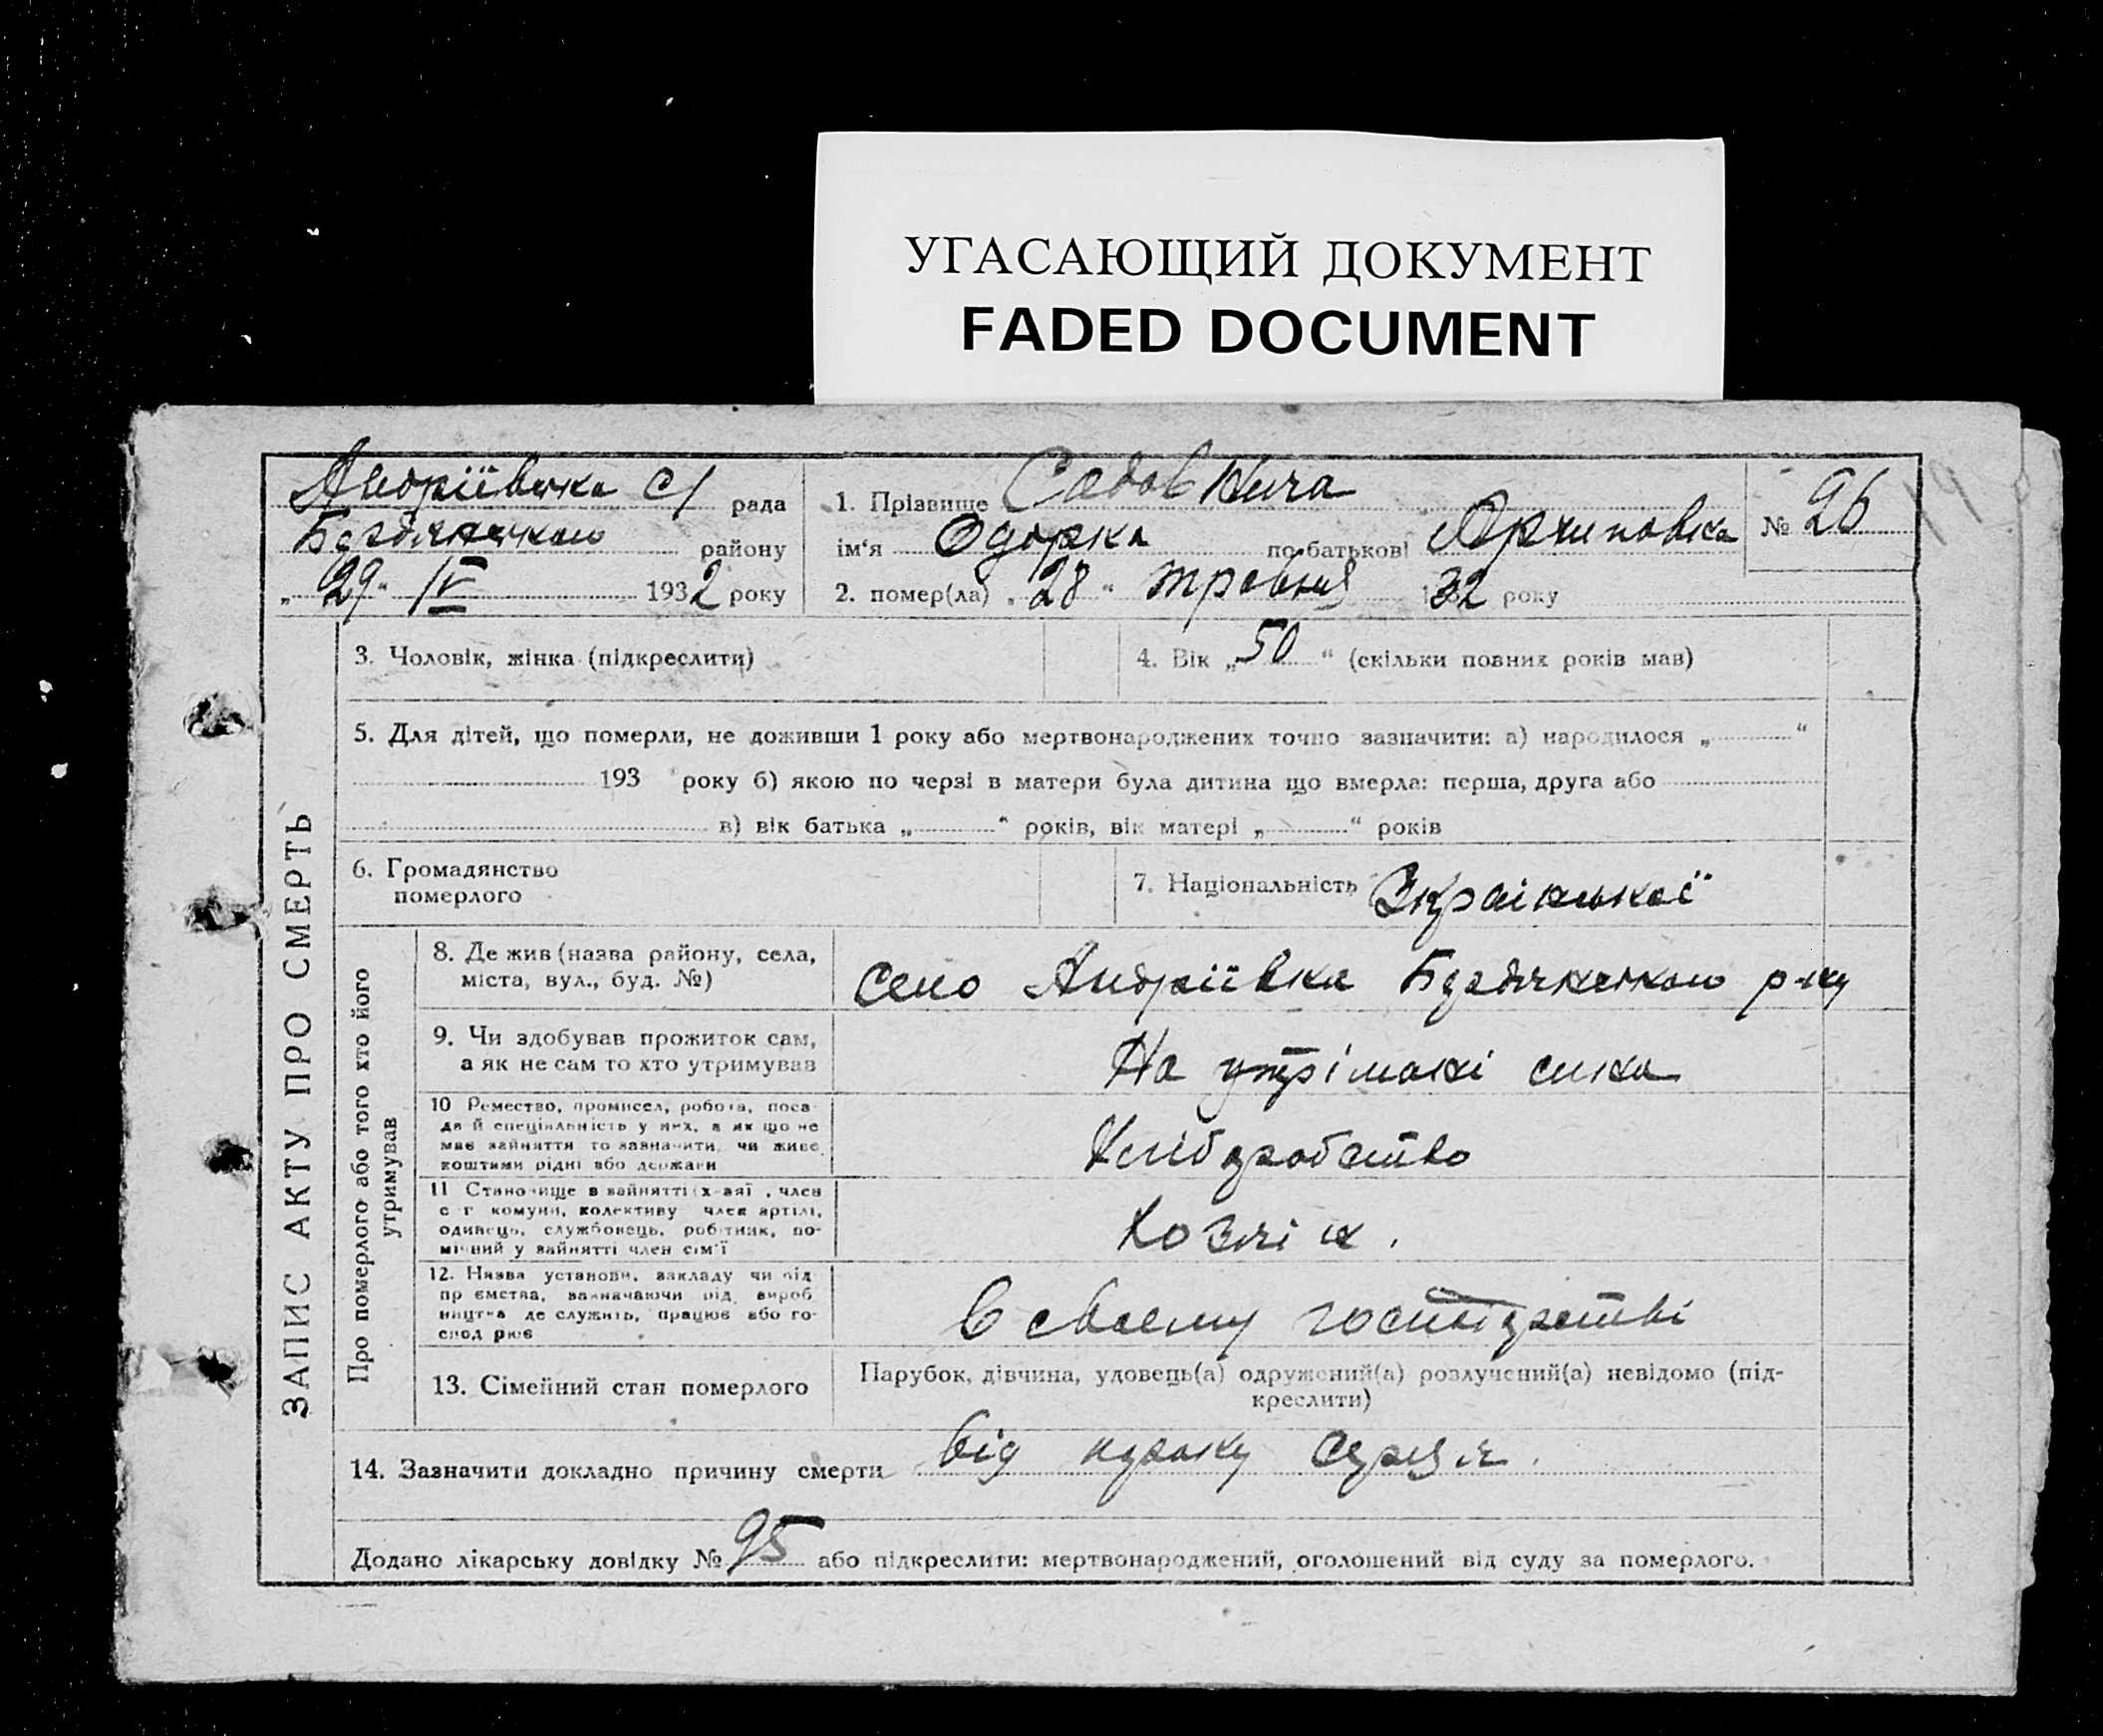 УГАСАЮЩИЙ ДОКУМЕНТ
FADED DOCUMENT
Андріївська с/ рада
Бердянського району
„29“ IV 1932 року
1. Прізвище Садовнича
ім‘я Одорка по батькові Архиповна
№ 96
2. помер(ла) „28“ травня 32 року
ЗАПИС АКТУ ПРО СМЕРТЬ
3. Чоловік, жінка (підкреслити)
4. Вік „50“ (скільки повних років мав)
5. Для дітей, що померли, не доживши 1 року або мертвонароджених точно зазначити: а) народилося „ “
193 року б) якою по черзі в матери була дитина що вмерла: перша, друга або
в) вік батька „ “ років, вік матері „ “ років
6. Громадянство
померлого
7. Національність Української
Про померлого або того хто його
утримував
8. Де жив (назва району, села,
міста, вул., буд. №)
село Андріївка Бердянського р-ну
9. Чи здобував прожиток сам,
а як не сам то хто утримував
На утрімані сина
10 Ремество, промисел, робота, поса-
да й спеціяльність у них, а як що не
має зайняття то зазначити, чи живе
коштами рідні або держави
Хліборобство
11 Становище в зайнятті (х-зяї , член
с г комуни, колективу член артілі,
одинець, службовець, робітник, по-
мічний у зайнятті член сім'ї
Хозяін.
12. Назва установи, закладу чи під
пр ємства, зазначаючи рід вироб
ництва де служить, працює або го-
спод рює
в своему господрстві
13. Сімейний стан померлого
Парубок, дівчина, удовець(а) одружений(а) розлучений(а) невідомо (під-
креслити)
14. Зазначити докладно причину смерти від пороку серця.
Додано лікарську довідку № 95 або підкреслити: мертвонароджений, оголошений від суду за померлого.